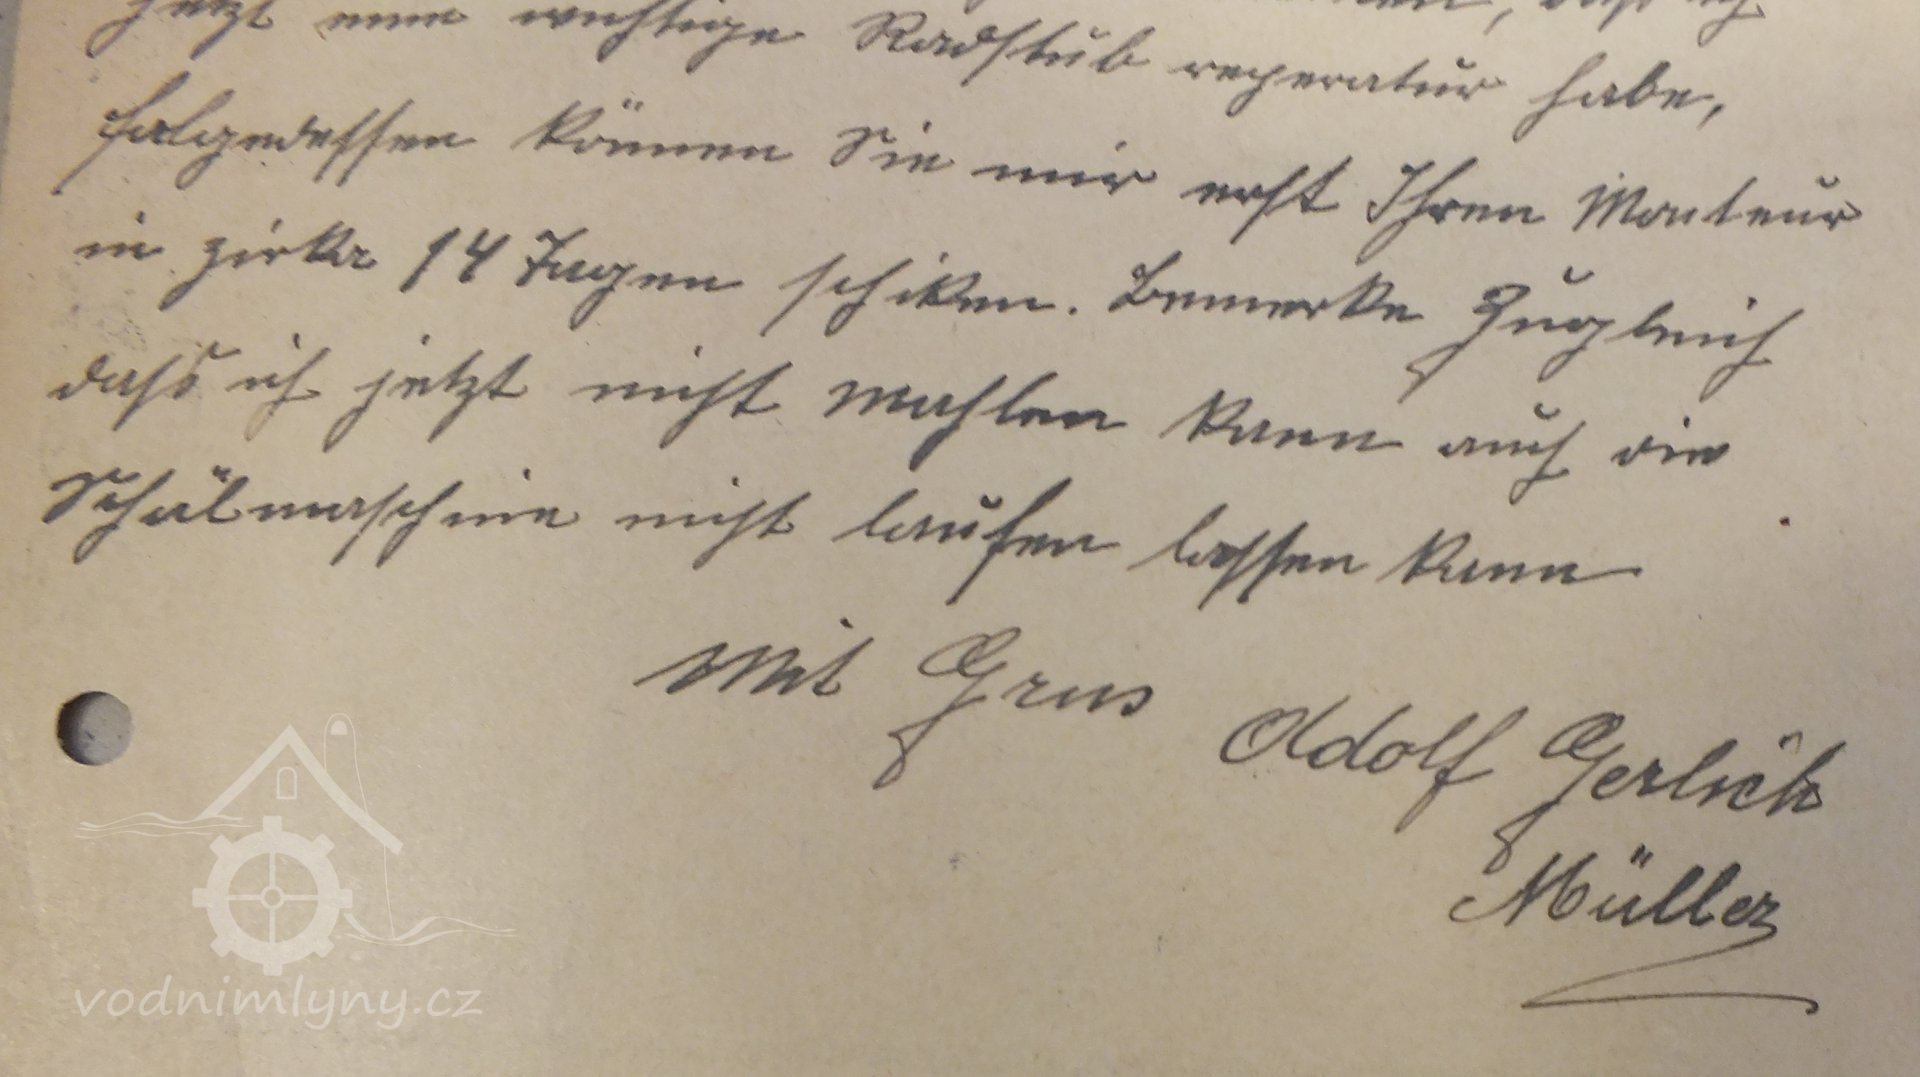 jetzt eine wichtige Radstub reperatur habe,
folgedessen können Sie mir erst Ihren Monteur
in zirka 14 Tagen schiken. Bemerke Zugleich
dass ich jetzt nicht mahlen kann auch die
Schälmaschine nicht laufen lassen kann
Mit Grus
Adolf Gerlich
Müller
vodnimlyny.cz